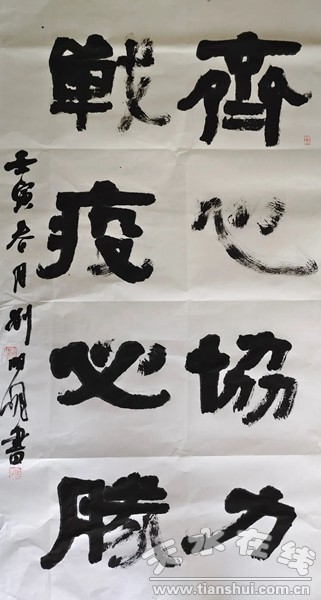 齊心協力
戦疫必勝
壬寅春月劉明書
天水在线
www.tianshui.com.cn